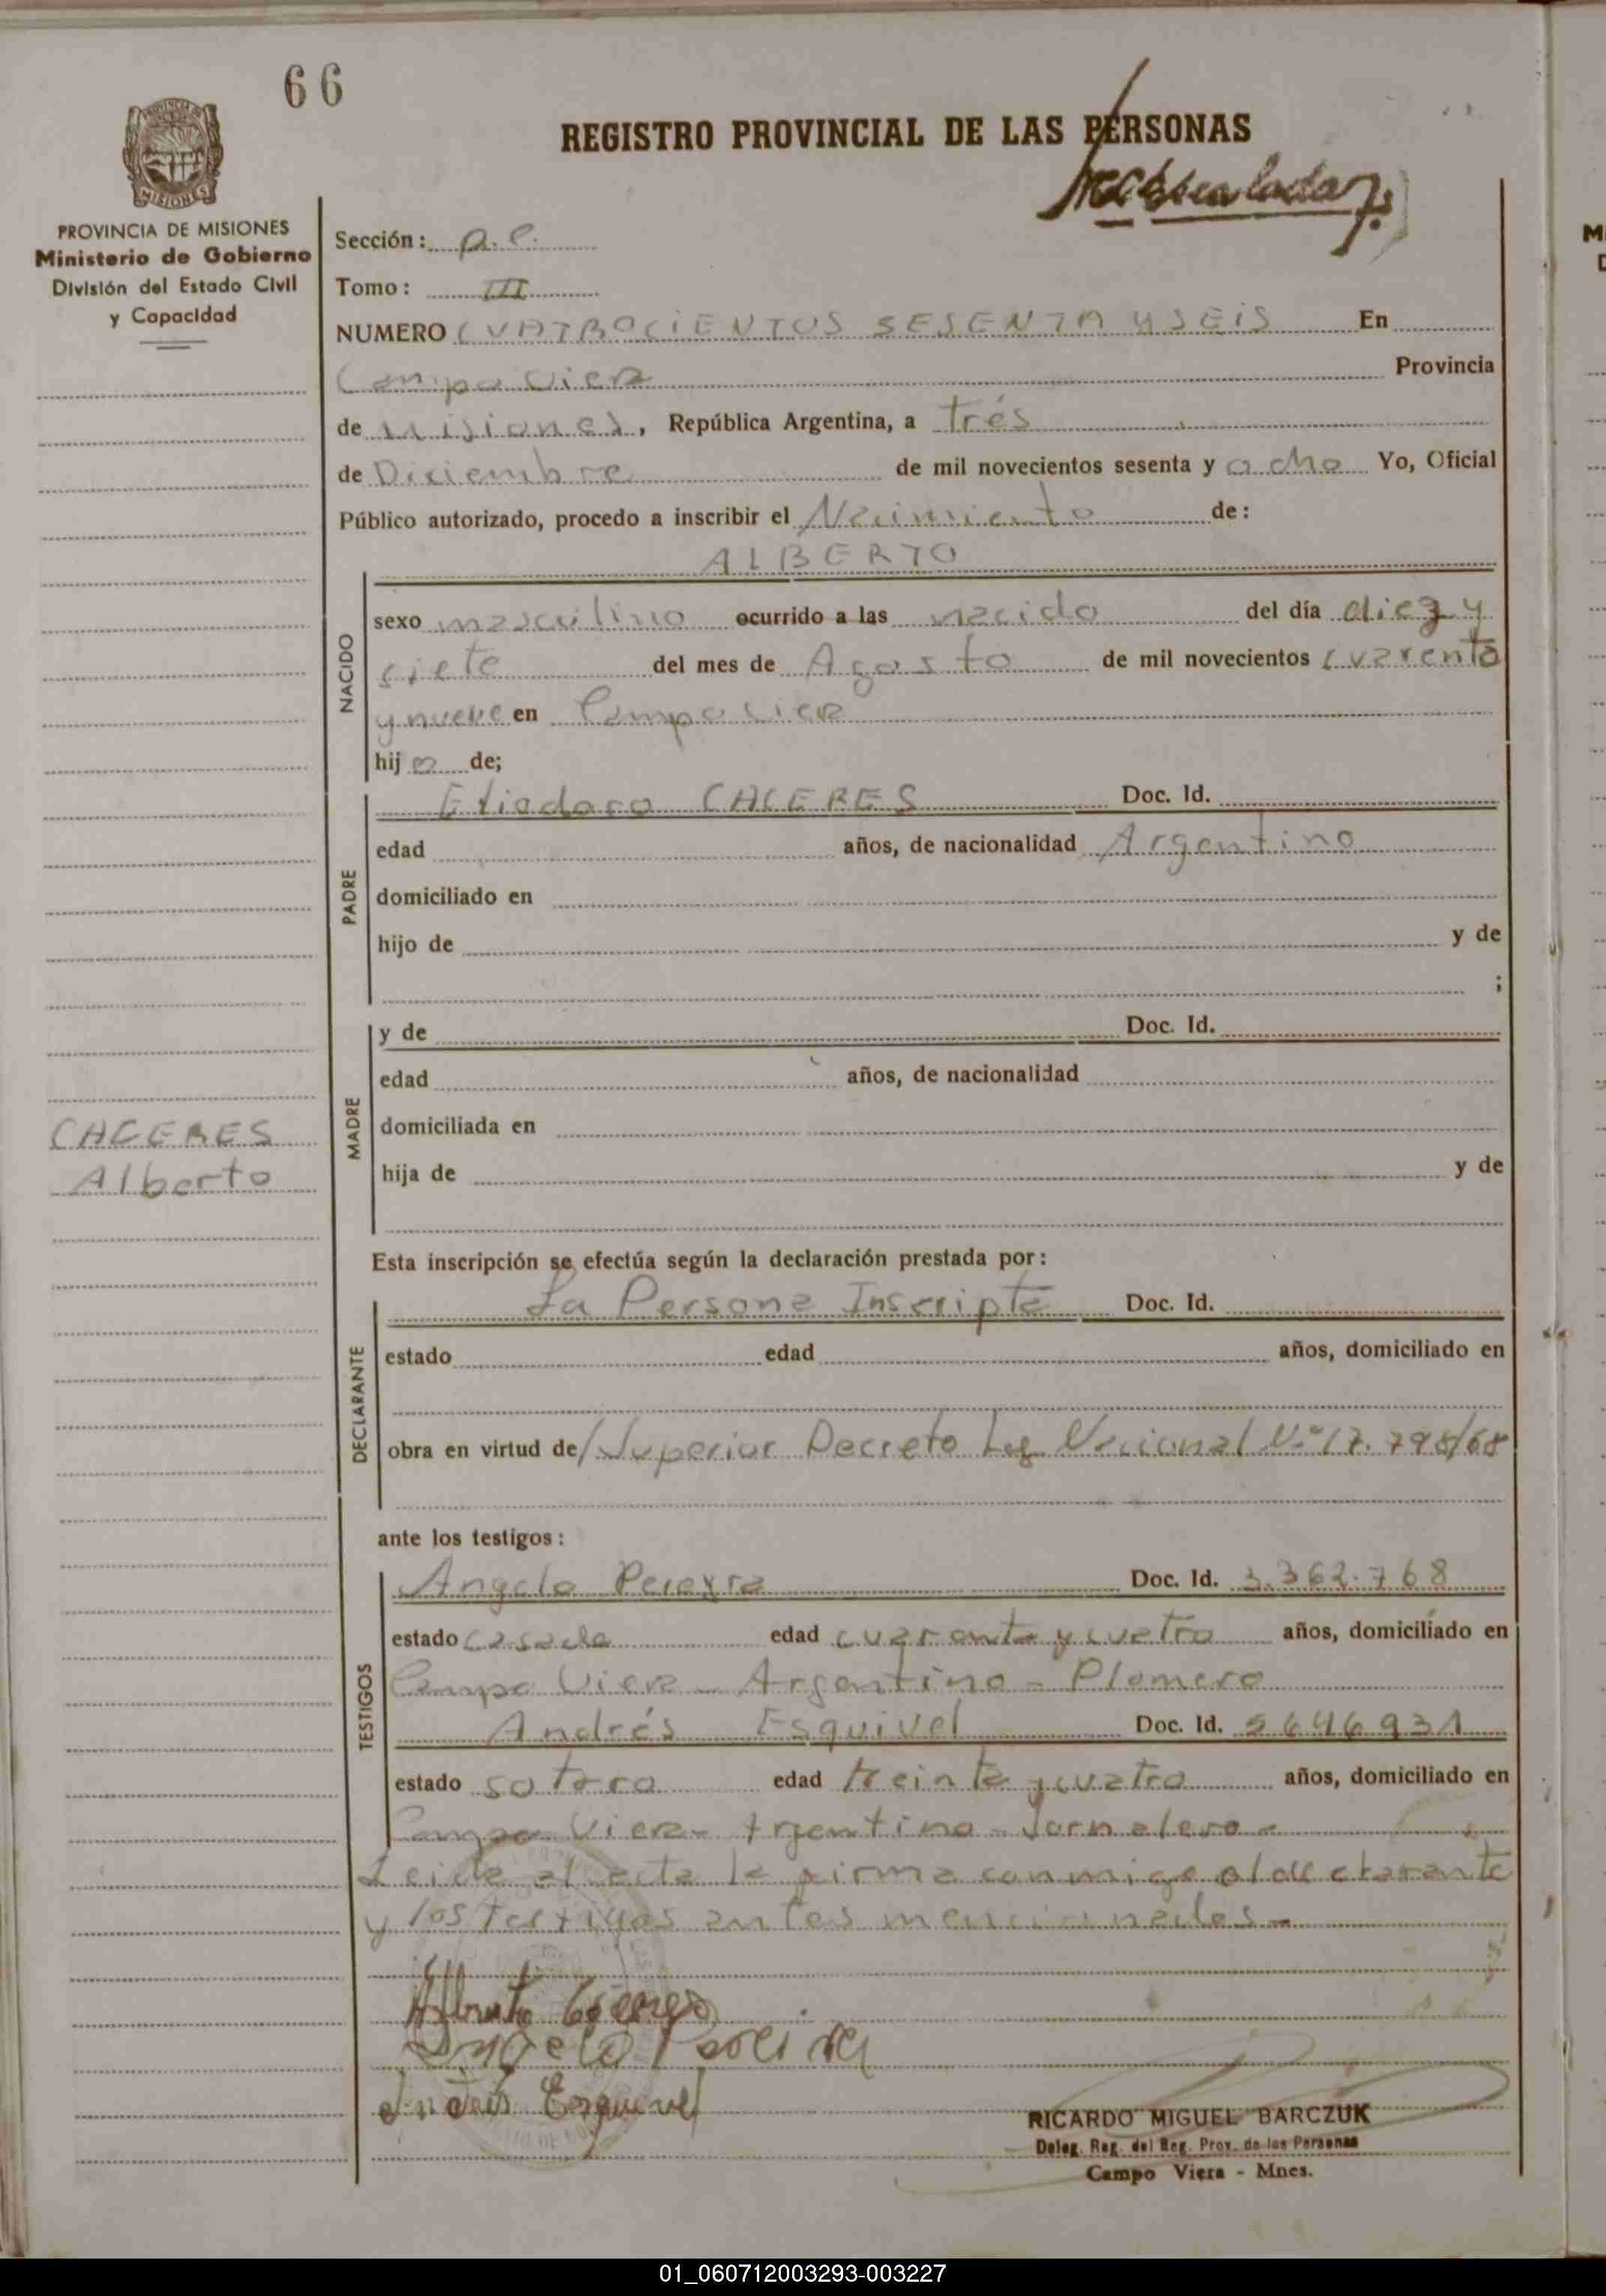 66
REGISTRO PROVINCIAL DE LAS PERSONAS
PROVINCIA DE MISIONES
Ministerio de Gobierno
División del Estado Civil
y Capacidad
Sección:
Tomo: III
NUMERO CUATROCIENTOS SESENTA Y SEIS En
Campo Viera Provincia
de Misiones, República Argentina, a trés
de Diciembre de mil novecientos sesenta y ocho Yo, Oficial
Público autorizado, procedo a inscribir el Nacimiento de:
ALBERTO
NACIDO
sexo masculino ocurrido a las nacido del día diez y
siete del mes de Agosto de mil novecientos cuarenta
y nueve en Campo Viera
hij o de;
PADRE
Eliodoro CACERES Doc. Id.
edad años, de nacionalidad Argentino
domiciliado en
hijo de y de
;
MADRE
y de Doc. Id.
edad años, de nacionalidad
domiciliada en
hija de y de
CACERES
Alberto
Esta inscripción se efectúa según la declaración prestada por:
DECLARANTE
La Persona Inscripta Doc. Id.
estado edad años, domiciliado en
obra en virtud de Superior Decreto Ley Nacional Nº 17.798/68
ante los testigos:
TESTIGOS
Angelo Pereyra Doc. Id. 3.362.768
estado casado edad cuarenta y cuatro años, domiciliado en
Campo Viera - Argentino - Plomero
Andrés Esquivel Doc. Id. 5646931
estado edad treinta y cuatro años, domiciliado en
Campo Viera - Argentino - Jornalero -
Leida el acta la firma conmigo el declarante
y los testigos antes mencionados -
Alberto
Andrés Esquivel
RICARDO MIGUEL BARCZUK
Deleg. Reg. del Reg. Prov. de las Personas
Campo Viera - Mnes.
01_060712003293-003227